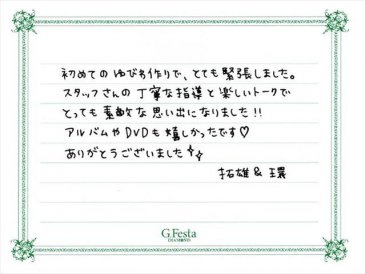 初めてのゆびわ作りで、とても緊張しました。
スタッフさんの丁寧な指導と楽しいトークで
とっても素敵な思い出になりました!!
アルバムやDVDも嬉しかったです♡
ありがとうございました✨
拓雄 & 環
G.Festa
DIAMOND